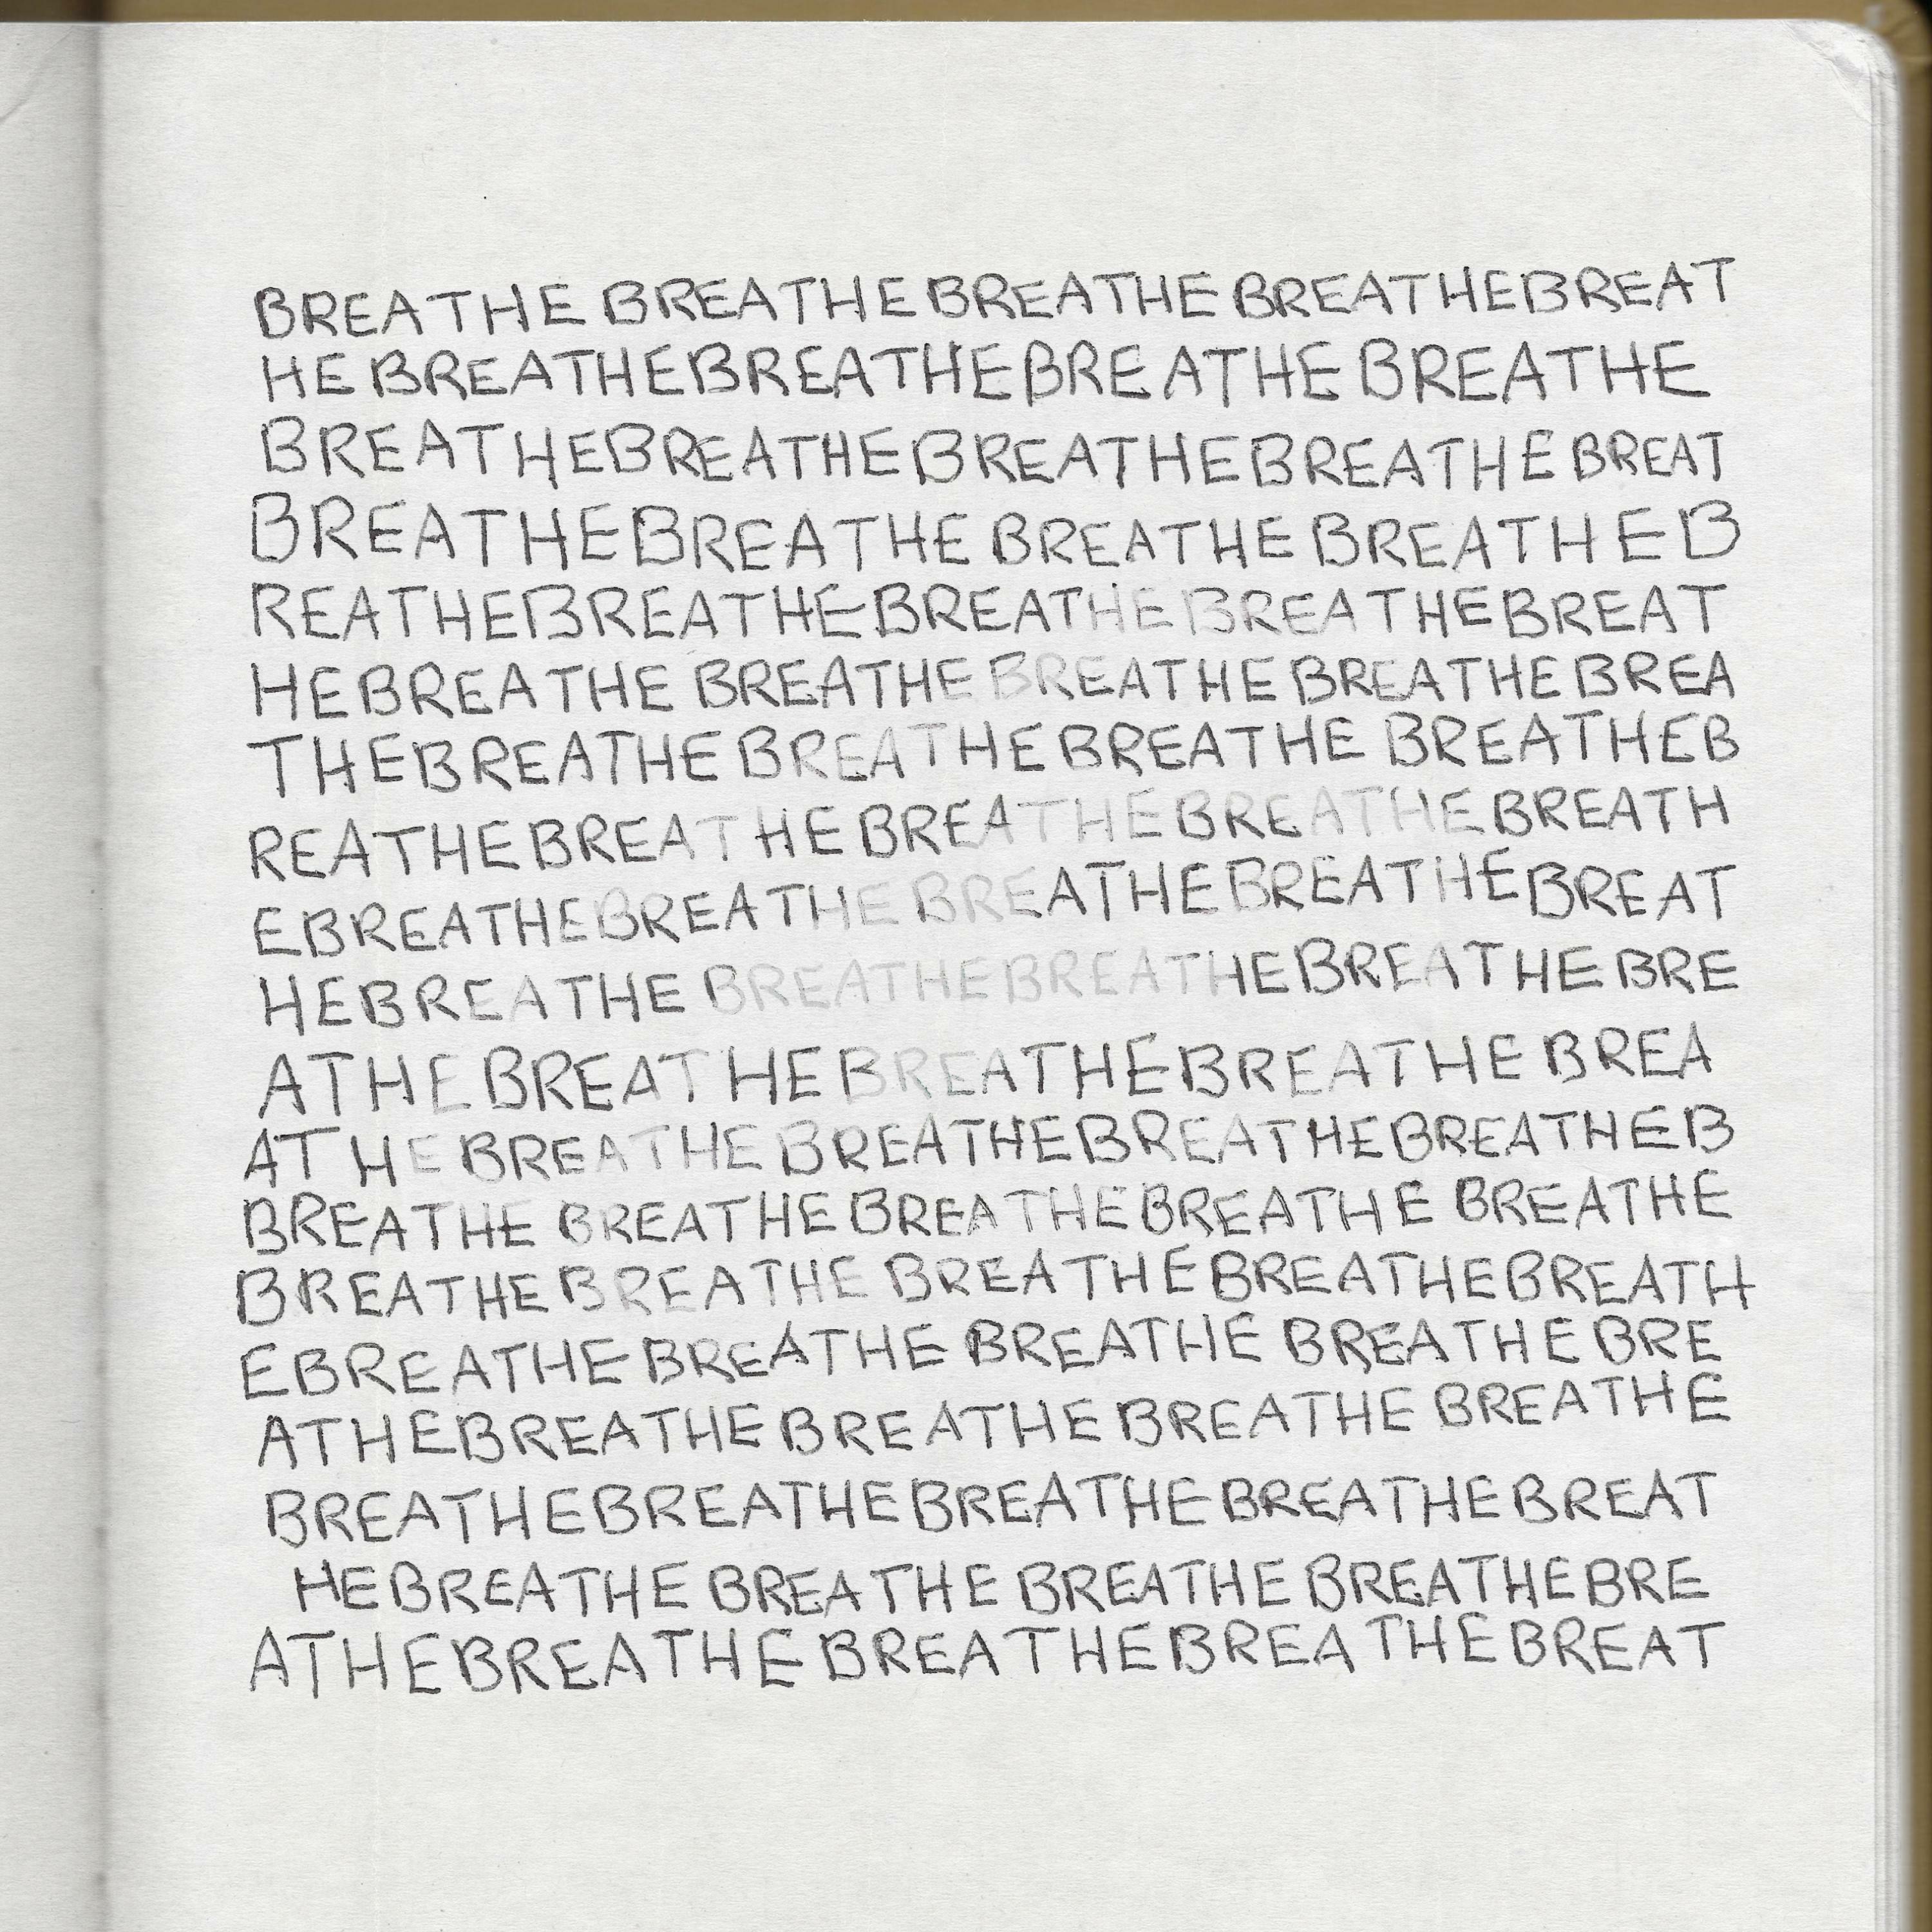 BREATHE BREATHE BREATHE BREATHEBREAT
HE BREATHEBREATHEBREATHE BREATHE
BREATHEBREATHE BREATHEBREATHE BREAT
BREATHEBREATHE BREATHE BREATHEB
REATHEBREATHEBREATHE BREATHEBREAT
HEBREATHE BREATHE BREATHE BREATHE BREA
THEBREATHE BREATHE BREATHE BREATHEB
REATHE BREATHE BREATHE BREATHE BREATH
EBREATHEBREATHE BREATHE BREATHE BREAT
HEBREATHE BREATHEBREATHEBREATHE BRE
ATHE BREATHE BREATHEBREATHE BREA
ATHE BREATHE BREATHEBREATHEBREATHEB
BREATHE BREATHE BREATHE BREATHE BREATHE
BREATHE BREATHE BREATHE BREATHEBREATH
EBREATHE BREATHE BREATHE BREATHE BRE
ATHEBREATHE BREATHE BREATHE BREATHE
BREATHEBREATHEBREATHE BREATHE BREAT
HEBREATHE BREATHE BREATHE BREATHEBRE
ATHEBREATHE BREATHEBREATHEBREAT